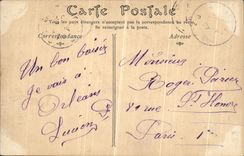 Carte Postale
Tous les pays étrangers n'acceptent pas la correspondance au recto.
Se renseigner à la poste.
Correspondance
Adresse
Un bon baiser
je vais à
Orléans
Lucien
Monsieur
Roger
rue St Honoré
Paris 1er